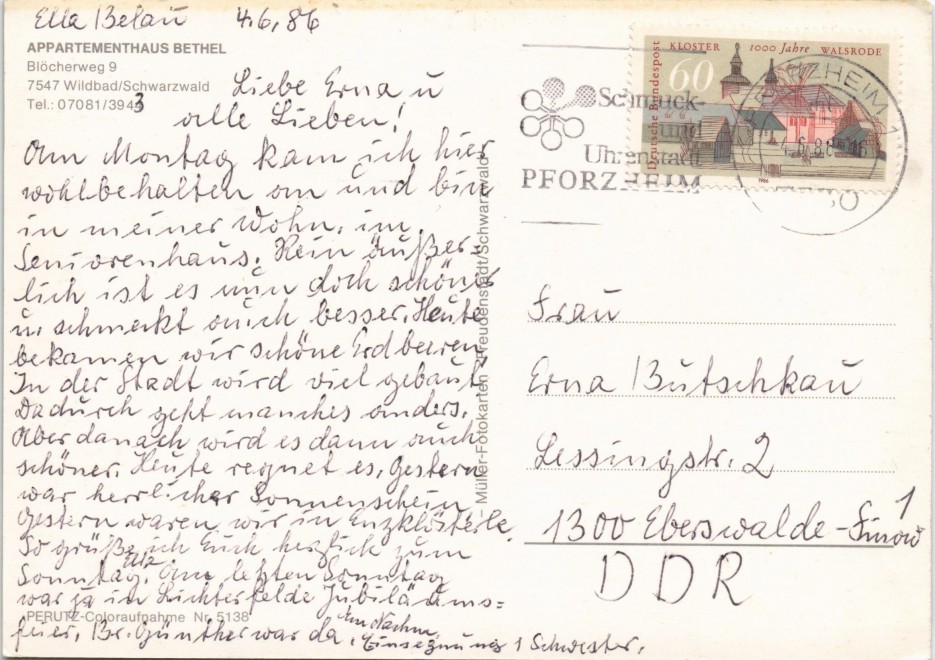 Ella Belau 4.6.86
APPARTEMENTHAUS BETHEL
Blöcherweg 9
7547 Wildbad/Schwarzwald
Tel.: 07081/3943
Liebe Erna u
alle Lieben!
Am Montag kam ich hier
wohlbehalten an und bin
in meiner Wohn. im
Seniorenhaus. Rein äußer=
lich ist es nun doch schöner
u. schmeckt auch besser. Heute
bekamen wir schöne Erdbeeren.
In der Stadt wird viel gebaut
Dadurch geht manches anders.
Aber danach wird es dann auch
schöner. Heute regnet es, gestern
war herrlicher Sonnenschein
Gestern waren wir in Enzklösterle.
So grüße ich Euch herzlich zum
Sonntag. Ella Am letzten Sonntag
war ja in Lichterfelde Jubiläums=
feier. Br. Günther war da. Am Nachm.
Einsegnung 1 Schwester.
PERUTZ-Coloraufnahme Nr. 5138
Müller-Fotokarten - Freudenstadt/Schwarzwald
Schmuck-
und
Uhrenstadt
PFORZHEIM
Deutsche Bundespost
KLOSTER 1000 Jahre WALSRODE
60
1986
PFORZHEIM 1
Frau
Erna Butschkau
Lessingstr. 2
1300 Eberswalde-Finow 1
DDR